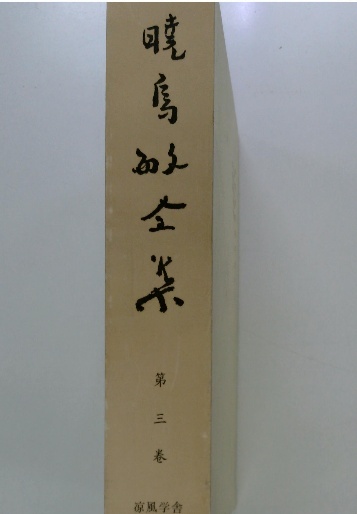 暁烏敏全集
第三巻
涼風学舎